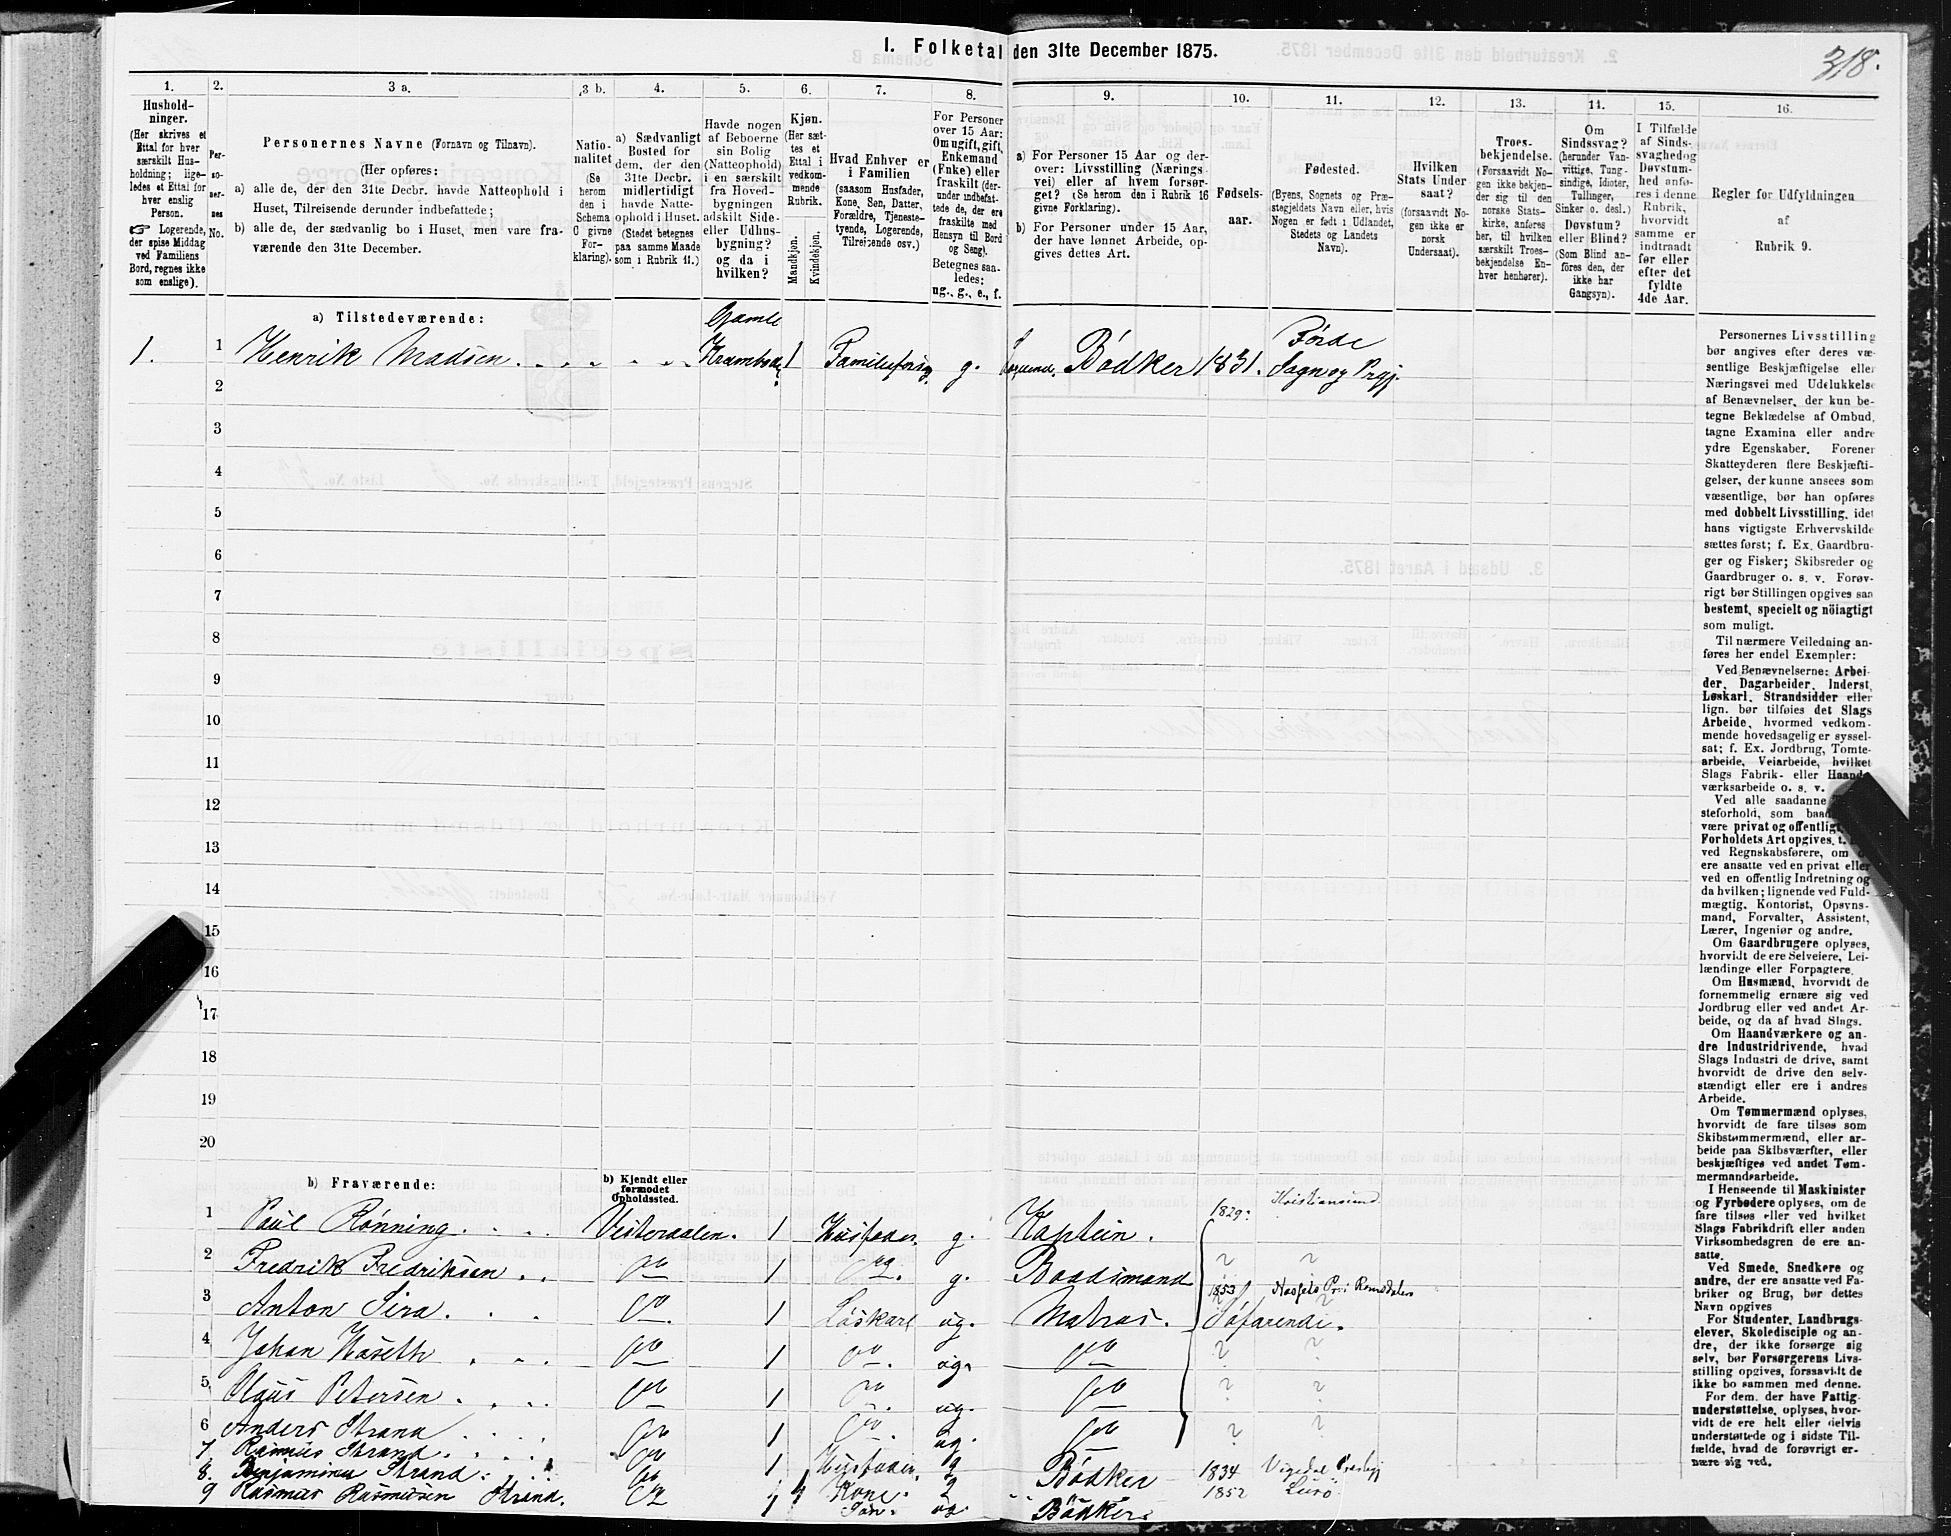 1. Folketal den 31te December 1875.
318.
1.
Hushold-
ninger.
(Her skrives et
Ettal for hver
særskilt Hus-
holdning; lige-
ledes et Ettal for
hver enslig
Person.
☞ Logerende,
der spise Middag
ved Familiens
Bord, regnes ikke
som enslige).
2.
Per-
so-
ner-
nes
No.
3 a.
Personernes Navne (Fornavn og Tilnavn).
(Her opføres:
a) alle de, der den 31te Decbr. havde Natteophold i
Huset, Tilreisende derunder indbefattede;
b) alle de, der sædvanlig bo i Huset, men vare fra-
værende den 31te December.
3 b.
Natio-
nalitet
(Se
herom
den i
Schema
C givne
For-
klaring).
4.
a) Sædvanligt
Bosted for
dem, der den
31te Decbr.
midlertidigt
havde Natte-
ophold i Huset.
(Stedet betegnes
paa samme Maade
som i Rubrik 11.)
5.
Havde nogen
af Beboerne
sin Bolig
(Natteophold)
i en særskilt
fra Hoved-
bygningen
adskilt Side-
eller Udhus-
bygning?
og da i
hvilken?
6.
Kjøn.
(Her sæt-
tes et
Ettal i
vedkom-
mende
Rubrik.
Mandkjøn.
Kvindekjøn.
7.
Hvad Enhver er
i Familien
(saasom Husfader,
Kone, Søn, Datter,
Forældre, Tjeneste-
tyende, Logerende,
Tilreisende osv.)
8.
For Personer
over 15 Aar:
Om ugift, gift,
Enkemand
(Enke) eller
fraskilt (der-
under indbefat-
tede de, der ere
fraskilte med
Hensyn til Bord
og Seng).
Betegnes saa-
ledes:
ug., g., e., f.
9.
a) For Personer 15 Aar og der-
over: Livsstilling (Nærings-
vei) eller af hvem forsør-
get? (Se herom den i Rubrik 16
givne Forklaring).
b) For Personer under 15 Aar,
der have lønnet Arbeide, op-
gives dettes Art.
10.
Fødsels-
aar.
11.
Fødested.
(Byens, Sognets og Præ-
stegjeldets Navn eller, hvis
Nogen er født i Udlandet,
Stedets og Landets
Navn).
12.
Hvilken
Stats Under
saat?
(forsaavidt No-
gen ikke er
norsk
Undersaat).
13.
Troes-
bekjendelse.
(Forsaavidt No-
gen ikke bekjen-
der sig til den
norske Stats-
kirke, anføres
her, til hvilken
særskilt Troes-
bekjendelse En-
hver henhører).
14.
Om
Sindssvag?
(herunder Van-
vittige, Tung-
sindige, Idioter,
Tullinger,
Sinker o. desl.)
Døvstum?
eller Blind?
(Som Blind an-
føres den, der
ikke har
Gangsyn).
15.
I Tilfælde
af Sinds-
svaghed og
Døvstum-
hed anfø-
res i denne
Rubrik,
hvorvidt
samme er
indtraadt
før eller
efter det
fyldte
4de Aar.
16.
Regler for Udfyldningen
af
Rubrik 9.
a) Tilstedeværende:
Gamle Førde
1. 1 Henrik Madsen Krambod 1 Familieforsø g. Bødker 1831. Sogn og Prgj.
2
3
4
5
6
7
8
9
10
11
12
13
14
15
16
17
18
19
20
b) Fraværende:
b) Kjendt eller
formodet
Opholdssted.
1 Paul Rønning Vesteraalen. 1 Husfader. g. Kaptein. 1829: Kristiansund
2 Fredrik Fredriksen do 1 do. g. Baadsmand ? ?
3 Anton Sira do 1 Løskarl ug. Matros. 1853 Søfarende.
4 Johan Haseth do 1 do. ug. do ? ?
5 Claus Petersen do 1 do. ug. do ? ?
6 Anders Strand do 1 do ug. do ? ?
7 Rasmus Strand do 1 Husfader. g Bødker 1834
8. Benjamine Strand do 1 Kone. g 1852 Lurø
9 Rasmus Rasmusen Strand. do 1 Søn. ug. Bødker.
Personernes Livsstilling
bør angives efter deres væ-
sentlige Beskjæftigelse eller
Næringsvei med Udelukkelse
af Benævnelser, der kun be-
tegne Beklædelse af Ombud,
tagne Examina eller andre
ydre Egenskaber. Forener
Skatteyderen flere Beskjæfti-
gelser, der kunne ansees som
væsentlige, bør han opføres
med dobbelt Livsstilling, idet
hans vigtigste Erhvervskilde
sættes først; f. Ex. Gaardbru-
ger og Fisker; Skibsreder og
Gaardbruger o. s. v. Forøv-
rigt bør Stillingen opgives saa
bestemt, specielt og nöiagtigt
som muligt.
Til nærmere Veiledning an-
føres her endel Exempler:
Ved Benævnelserne: Arbei-
der, Dagarbeider, Inderst,
Løskarl, Strandsidder eller
lign. bør tilføies det Slags
Arbeide, hvormed vedkom-
mende hovedsagelig er syssel-
sat; f. Ex. Jordbrug, Tomte-
arbeide, Veiarbeide, hvilket
Slags Fabrik- eller Haand-
værksarbeide o. s. v.
Ved alle saadanne
steforhold, som baade
være privat og offentligt
Forholdets Art opgives, t.
ved Regnskabsførere, om
ere ansatte ved en privat eller
ved en offentlig Indretning og
da hvilken; lignende ved Fuld-
mægtig, Kontorist, Opsyns-
mand, Forvalter, Assistent,
Lærer, Ingeniør og andre.
Om Gaardbrugere oplyses,
hvorvidt de ere Selveiere, Lei-
lændinge eller Forpagtere.
Om Husmænd, hvorvidt de
fornemmelig ernære sig ved
Jordbrug eller ved andet Ar-
beide, og da af hvad Slags.
Om Haandværkere og an-
dre Industridrivende, hvad
Slags Industri de drive, samt
hvorvidt de drive den selv-
stændigt eller ere i andres
Arbeide.
Om Tømmermænd oplyses,
hvorvidt de fare tilsøs som
Skibstømmermænd, eller ar-
beide paa Skibsværfter, eller
beskjæftiges ved andet Tøm-
mermandsarbeide.
I Henseende til Maskinister
og Fyrbødere oplyses, om de
fare tilsøs eller ved hvilket
Slags Fabrikdrift eller anden
Virksomhedsgren de ere an-
satte.
Ved Smede, Snedkere og
andre, der ere ansatte ved Fa-
briker og Brug, bør dettes
Navn opgives
For Studenter, Landbrugs-
elever, Skoledisciple og an-
dre, der ikke forsørge sig
selv, bør Forsørgerens Livs-
stilling opgives, forsaavidt de
ikke bo sammen med denne.
For dem, der have Fattig-
understøttelse, oplyses, hvor-
vidt de ere helt eller delvis
understøttede og i sidste Til-
fælde, hvad de forøvrigt er-
nære sig ved.